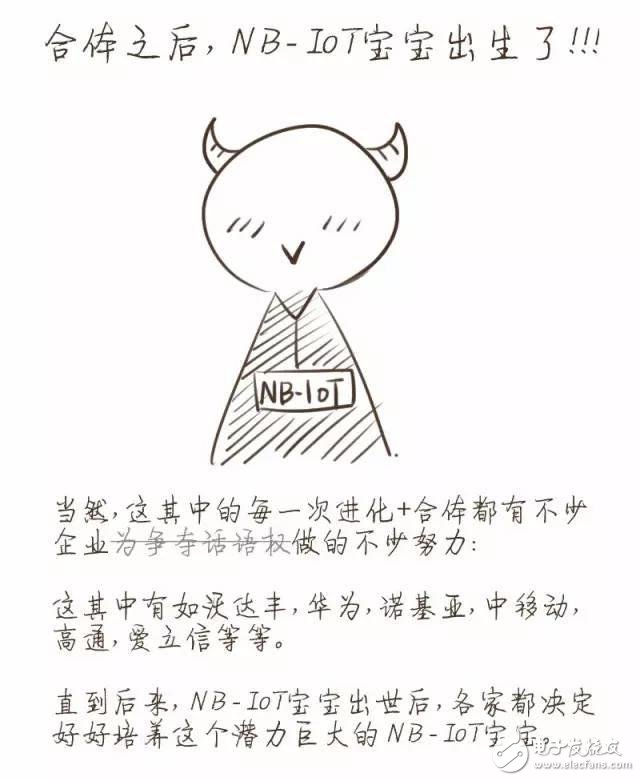 合体之后，NB-IoT宝宝出生了!!!
NB-IoT
当然，这其中的每一次进化+合体都有不少
企业为争夺话语权做的不少努力：
这其中有如沃达丰，华为，诺基亚，中移动，
高通，爱立信等等。
直到后来，NB-IoT宝宝出世后，各家都决定
好好培养这个潜力巨大的NB-IoT宝宝。
电子发烧友
www.elecfans.com